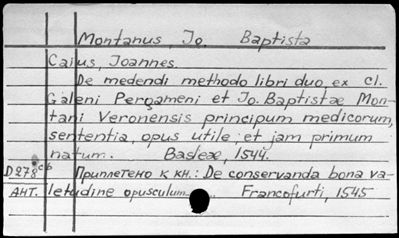 Montanus, Jo. Baptista
Caius, Joannes.
De medendi methodo libri duo, ex Cl.
Galeni Pergameni et Jo. Baptistæ Mon-
tani Veronensis principum medicorum,
sententia, opus utile, et jam primum
natum. Basleæ, 1544.
D278cb Приплетено к кн.: De conservanda bona va-
АНТ. letudine opusculum Francofurti, 1545